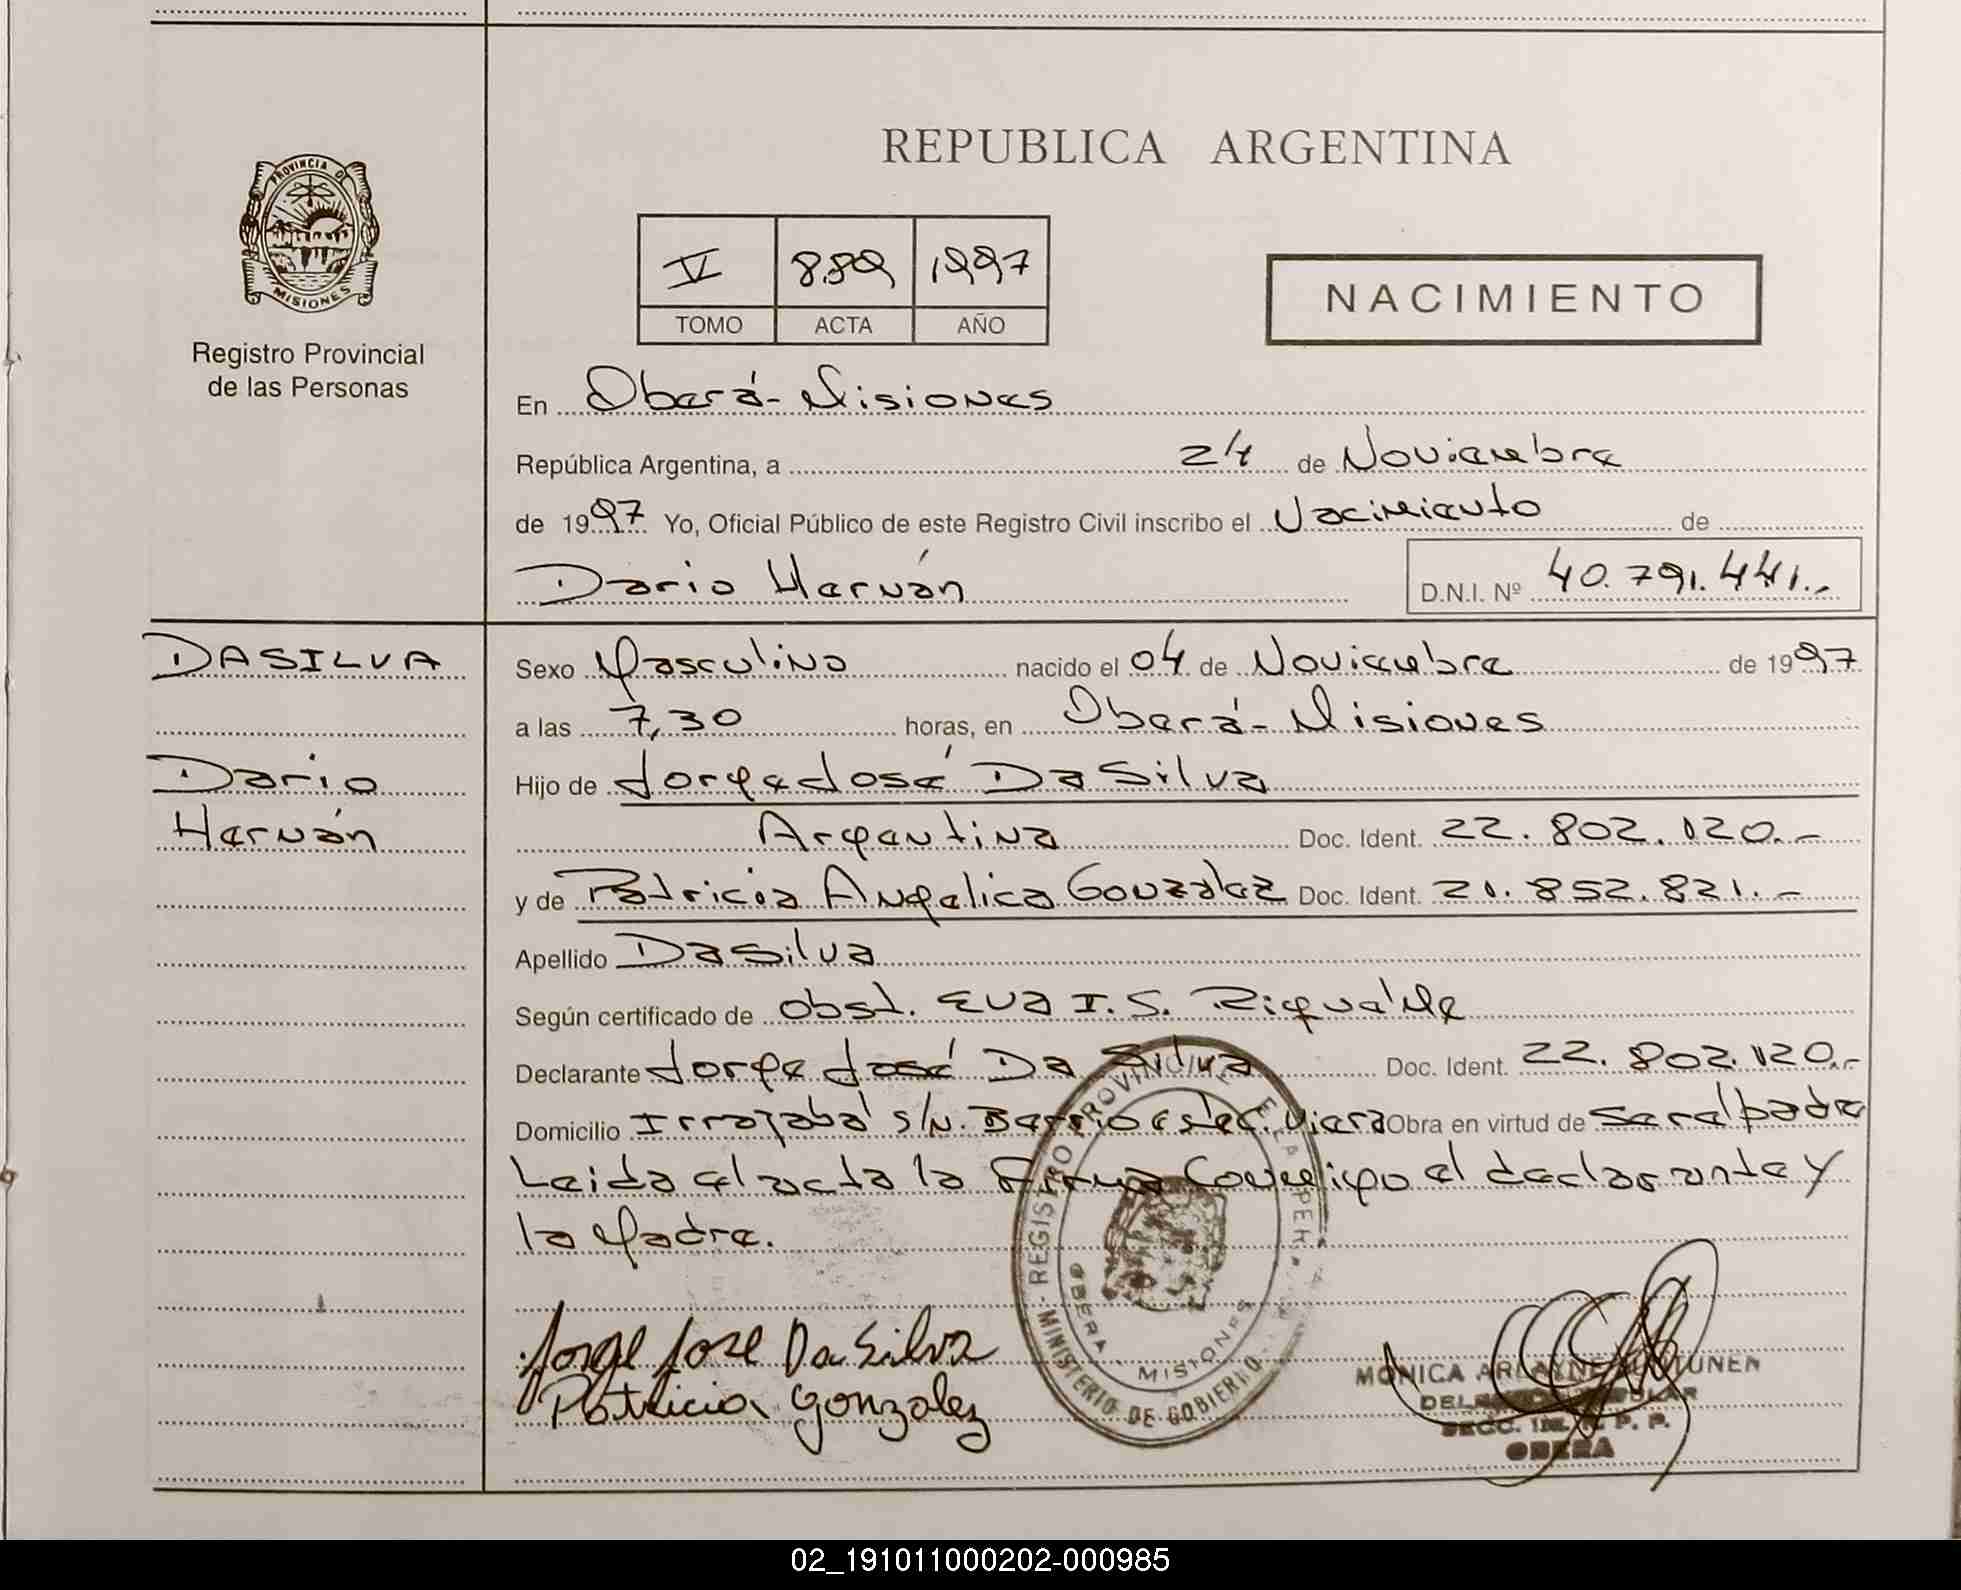 PROVINCIA DE
MISIONES
Registro Provincial
de las Personas
REPUBLICA ARGENTINA
V 889 1997
TOMO ACTA AÑO
NACIMIENTO
En Oberá - Misiones
República Argentina, a 24 de Noviembre
de 1997 Yo, Oficial Público de este Registro Civil inscribo el Nacimiento de
Dario Hernán D.N.I. Nº 40.791.441.-
DASILVA
Dario
Hernán
Sexo Masculino nacido el 04 de Noviembre de 1997
a las 7,30 horas, en Oberá - Misiones
Hijo de Jorge José Da Silva
Argentina Doc. Ident. 22.802.120.-
y de Patricia Angelica González Doc. Ident. 21.852.821.-
Apellido Da Silva
Según certificado de Obst. Eva I. S.
Declarante Jorge José Da Silva Doc. Ident. 22.802.120.-
Domicilio s/n. Barrio Obra en virtud de ser el padre
Leida el acta la firma conmigo el declarante y
la Madre.
REGISTRO PROVINCIAL DE LAS PER.
MINISTERIO DE GOBIERNO
OBERA - MISIONES
Jorge Jose Da Silva
Patricia Gonzalez
MONICA
OBERA
02_191011000202-000985